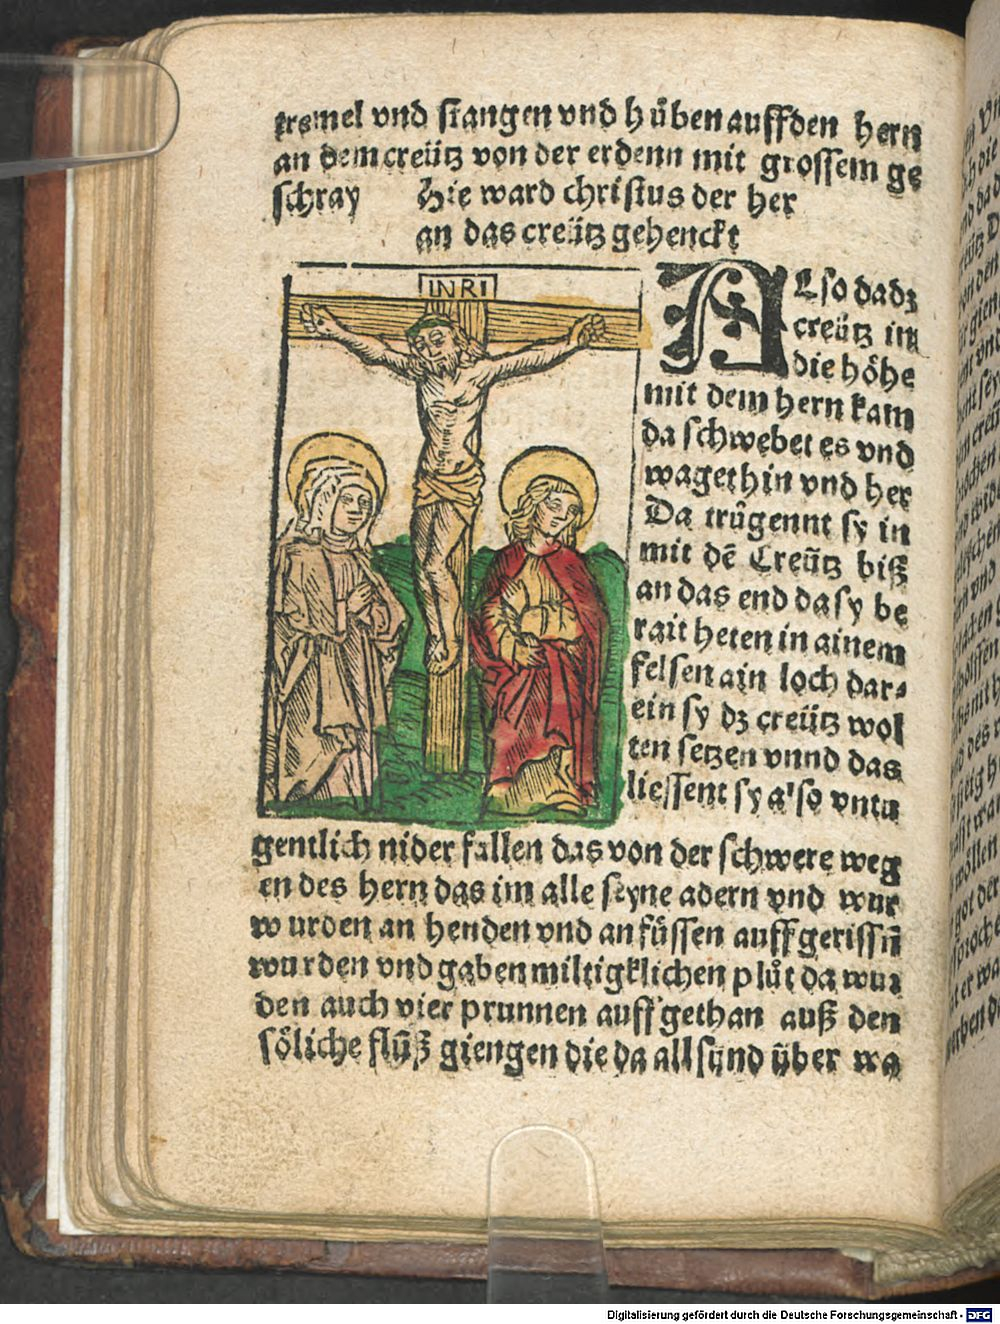 kremel vnd stangen vnd hůben auffden hern
an dem creütz von der erdenn mit grossem ge
schray Hie ward christus der her
an das creütz gehenckt
INRI
ALso dadz
creütz in
die höhe
mit dem hern kam
da schwebet es vnd
waget hin vnd her
Da trůgennt sy in
mit dē Creütz biß
an das end da sy be
rait heten in ainem
felsen ain loch dar⸗
ein sy dz creütz wol
ten setzen vnnd das
liessent sy also vntu
gentlich nider fallen das von der schwere weg
en des hern das im alle seyne adern vnd wur
wurden an henden vnd an füssen auff gerissn̄
wurden vnd gaben miltigklichen plůt da wur
den auch vier prunnen auff gethan auß den
söliche flüß giengen die da all sünd über wa
Digitalisierung gefördert durch die Deutsche Forschungsgemeinschaft - DFG